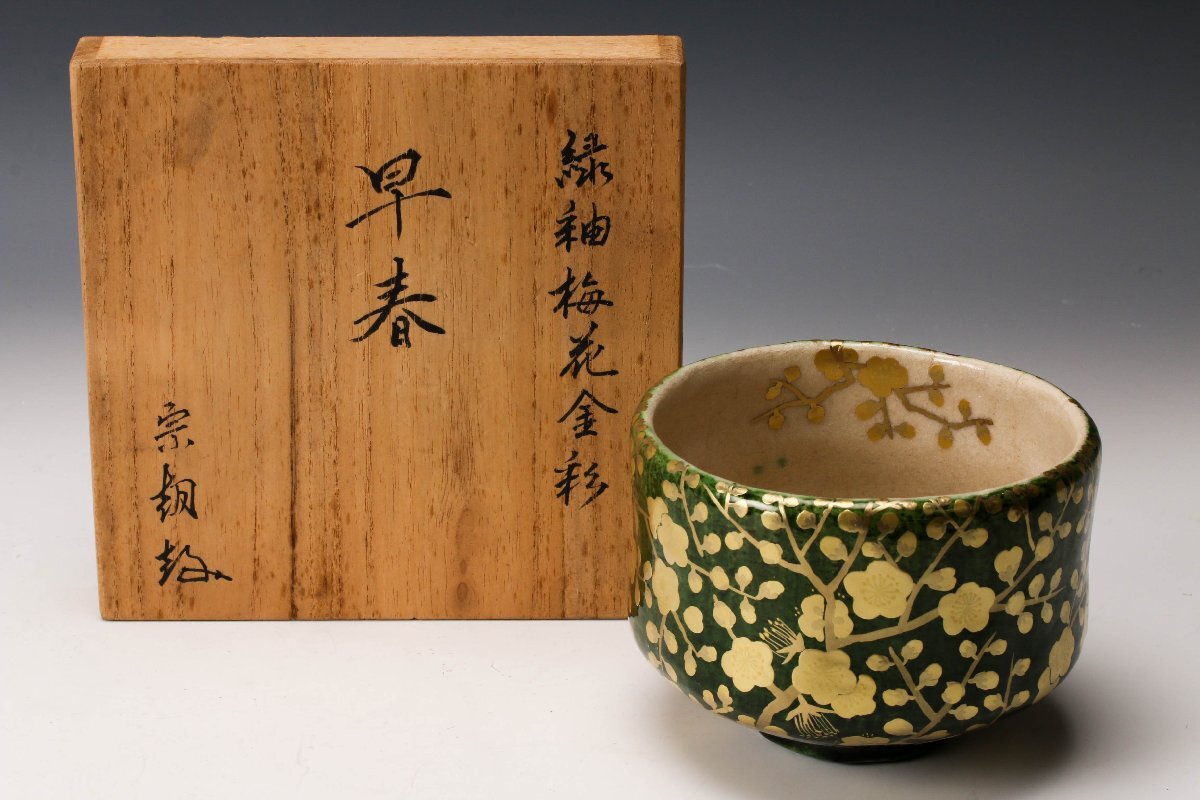 緑釉梅花金彩
早春
宗胡造